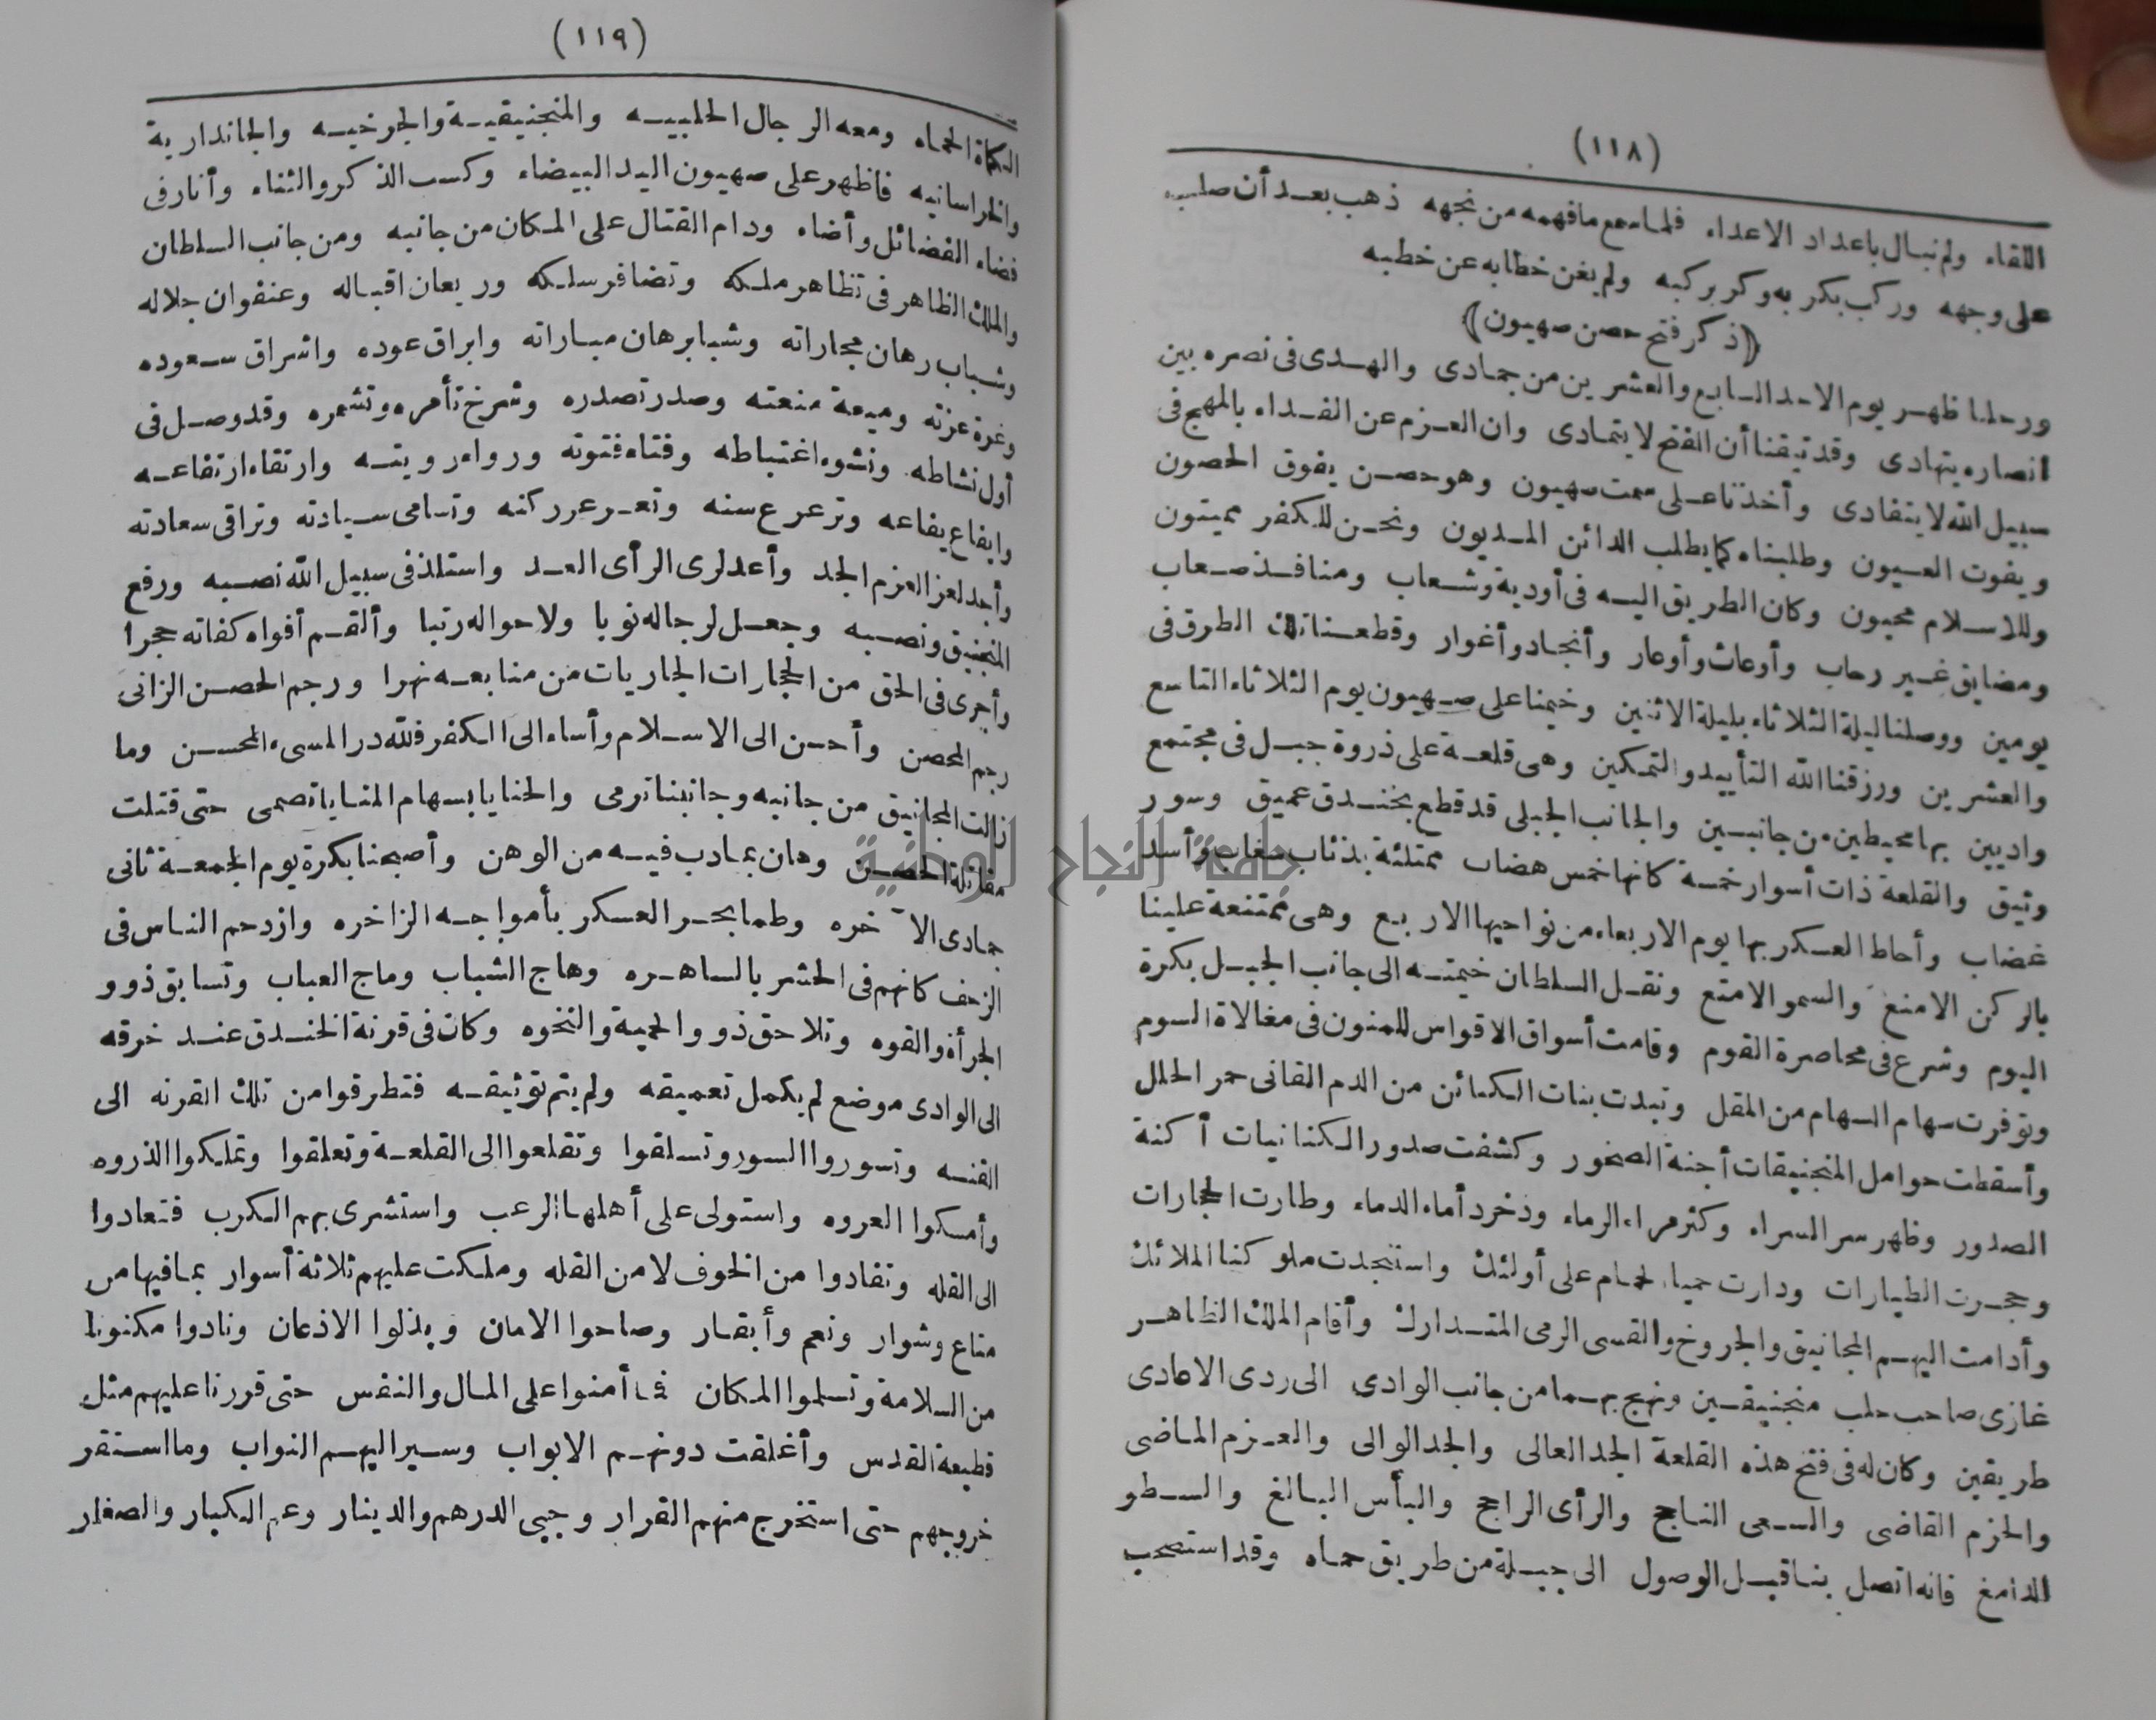 (١١٨)
اللقاء ولم نبال باعداد الاعداء فلما سمع ما فهمه من نجهه ذهب بعد أن صلب
على وجهه وركب بكر به وكر بركبه ولم يغن خطابه عن خطبه
(ذكر فتح حصن صهيون)
ورحلنا ظهر يوم الاحد السابع والعشرين من جمادى والهدى فى نصره بين
انصاره يتهادى وقد تيقنا أن الفتح لا يتمادى وان العزم عن الفداء بالمهج فى
سبيل الله لا يتفادى وأخذنا على سمت صهيون وهو حصن يفوق الحصون
ويفوت العيون وطلبناه كما يطلب الدائن المديون ونحن للكفر مميتون
وللاسلام محيون وكان الطريق اليه فى أودية وشعاب ومنافذ صعاب
ومضايق غير رحاب وأوعاث وأوعار وأنجاد وأغوار وقطعنا تلك الطرق فى
يومين ووصلنا ليلة الثلاثاء بليلة الاثنين وخيمنا على صهيون يوم الثلاثاء التاسع
والعشرين ورزقنا الله التأييد والتمكين وهى قلعة على ذروة جبل فى مجتمع
واديين بها محيطين من جانبين والجانب الجبلى قد قطع بخندق عميق وسور
وثيق والقلعة ذات أسوار خمسة كانها خمس هضاب ممتلئة بذئاب سغاب وأسد
غضاب وأحاط العسكر بها يوم الاربعاء من نواحيها الاربع وهى ممتنعة علينا
بالركن الامنع والسمو الامتع ونقل السلطان خيمته الى جانب الجبل بكرة
اليوم وشرع فى محاصرة القوم وقامت أسواق الاقواس للمنون فى مغالاة السوم
وتوفرت سهام السهام من المقل وتبدت بنات الكنائن من الدم القانى حمر الحلل
وأسقطت حوامل المنجنيقات أجنة الصخور وكشفت صدور الكنانيات أكنة
الصدور وظهر سر السراء وكثر مراء الرماء وذخر دأماء الدماء وطارت الحجارات
وحجرت الطيارات ودارت حميا الحمام على أولئك واستنجدت ملوكنا الملائك
وأدامت اليهم المجانيق والجروخ والقسى الرمى المتدارك وأقام الملك الظاهر
غازى صاحب حلب منجنيقين ونهج بهما من جانب الوادى الى ردى الاعادى
طريقين وكان له فى فتح هذه القلعة الجد العالى والجد الوالى والعزم الماضى
والحزم القاضى والسعى الناجح والرأى الراجح والبأس البالغ والسطو
الدامغ فانه اتصل بنا قبل الوصول الى جبلة من طريق حماه وقد استصحب
(١١٩)
الكماة الحماه ومعه الرجال الحلبيه والمنجنيقية والجرخيه والجاندارية
والخراسانيه فاظهر على صهيون اليد البيضاء وكسب الذكر والثناء وأنار فى
فضاء الفضائل وأضاء ودام القتال على المكان من جانبه ومن جانب السلطان
والملك الظاهر فى تظاهر ملكه وتضافر سلكه وريعان اقباله وعنفوان جلاله
وشباب رهان مجاراته وشبا برهان مباراته وابراق عوده واشراق سعوده
وغرة عزته وميعة منعته وصدر تصدره وشرخ تأمره وتشمره وقد وصل فى
أول نشاطه ونشوء اغتباطه وفتاء فتوته ورواء رويته وارتقاء ارتفاعه
وايفاع يفاعه وترعرع سنه وتعرعر ركنه وتسامى سيادته وتراقى سعادته
وأجد لعز العزم الجد وأعد لرى الرأى العد واستلذ فى سبيل الله نصبه ورفع
المنجنيق ونصبه وجعل لرجاله نوبا ولاحواله رتبا وألقم أفواه كفاته حجرا
وأجرى فى الحق من الحجارات الجاريات من منابعه نهرا ورجم الحصن الزانى
رجم المحصن وأحسن الى الاسلام وأساء الى الكفر فلله در المسىء المحسن وما
زالت المجانيق من جانبه وجانبنا ترمى والحنايا بسهام المنايا تصمى حتى قتلت
مقاتلة الحصن وهان بما دب فيه من الوهن وأصبحنا بكرة يوم الجمعة ثانى
جمادى الآخره وطما بحر العسكر بأمواجه الزاخره وازدحم الناس فى
الزحف كانهم فى الحشر بالساهره وهاج الشباب وماج العباب وتسابق ذوو
الجرأة والقوه وتلاحق ذوو الحمية والنخوه وكان فى قرنة الخندق عند خرقه
الى الوادى موضع لم يكمل تعميقه ولم يتم توثيقه فتطرقوا من تلك القرنه الى
القنه وتسوروا السور وتسلقوا وتقلعوا الى القلعة وتعلقوا وتملكوا الذروه
وأمسكوا العروه واستولى على أهلها الرعب واستشرى بهم الكرب فتعادوا
الى القله وتفادوا من الخوف لا من القله وملكت عليهم ثلاثة أسوار بما فيها من
متاع وشوار ونعم وأبقار وصاحوا الامان وبذلوا الاذعان ونادوا مكنونا
من السلامة وتسلموا المكان فما أمنوا على المال والنفس حتى قررنا عليهم مثل
قطيعة القدس وأغلقت دونهم الابواب وسير اليهم النواب وما استقر
خروجهم حتى استخرج منهم القرار وجبى الدرهم والدينار وعم الكبار والصغار
جامعة النجاح الوطنية